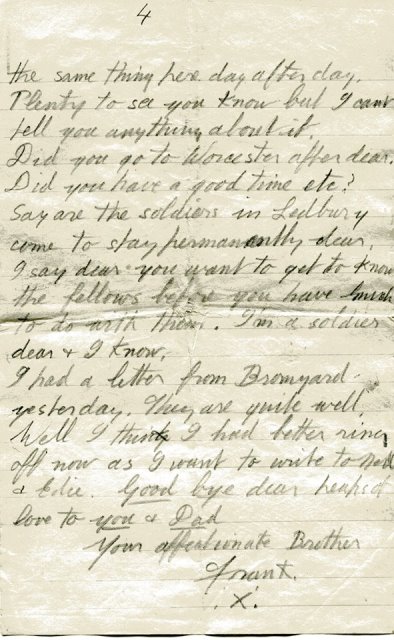 4
the same thing here day after day.
Plenty to see you know but I cant
tell you anything about it.
Did you go to Worcester after dear.
Did you have a good time etc?
Say are the soldiers in Ledbury
come to stay permanantly dear.
I say dear you want to get to know
the fellows before you have much
to do with them. I'm a soldier
dear & I know.
I had a letter from Bromyard
yesterday. They are quite well.
Well I think I had better ring
off now as I want to write to Nell
& Edie. Good bye dear heaps of
love to you & Dad
Your affectionate Brother
Frank.
. X .